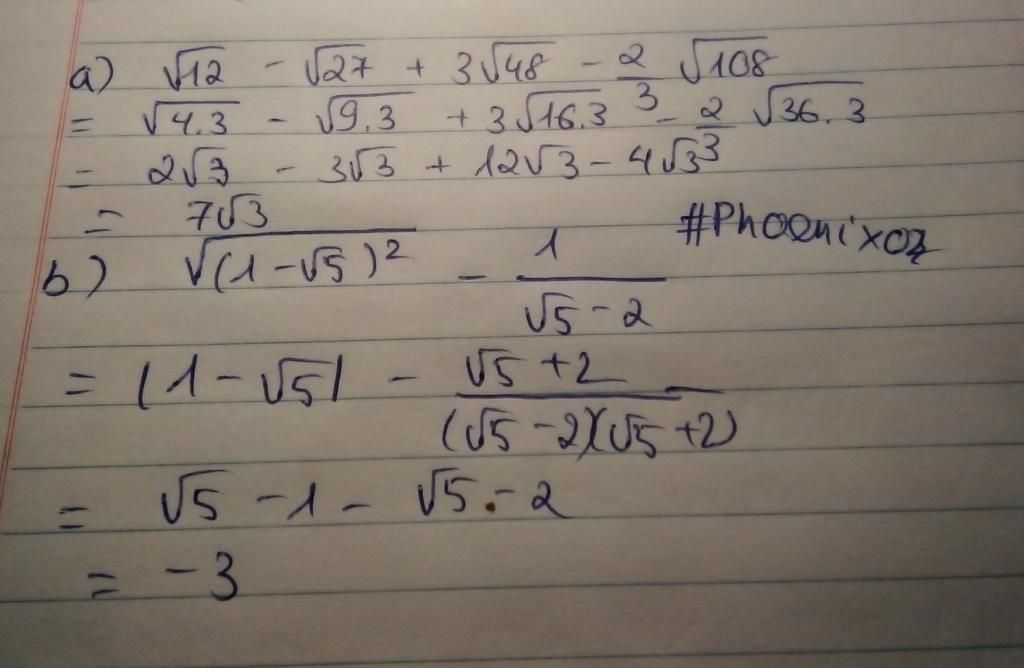 a) √12 - √27 + 3√48 - 2/3 √108
= √4.3 - √9.3 + 3√16.3 - 2/3 √36.3
= 2√3 - 3√3 + 12√3 - 4√3
= 7√3
#Phoenixoz
b) √(1-√5)² - 1/(√5-2)
= |1-√5| - (√5+2)/((√5-2)(√5+2))
= √5 -1 - √5 - 2
= -3